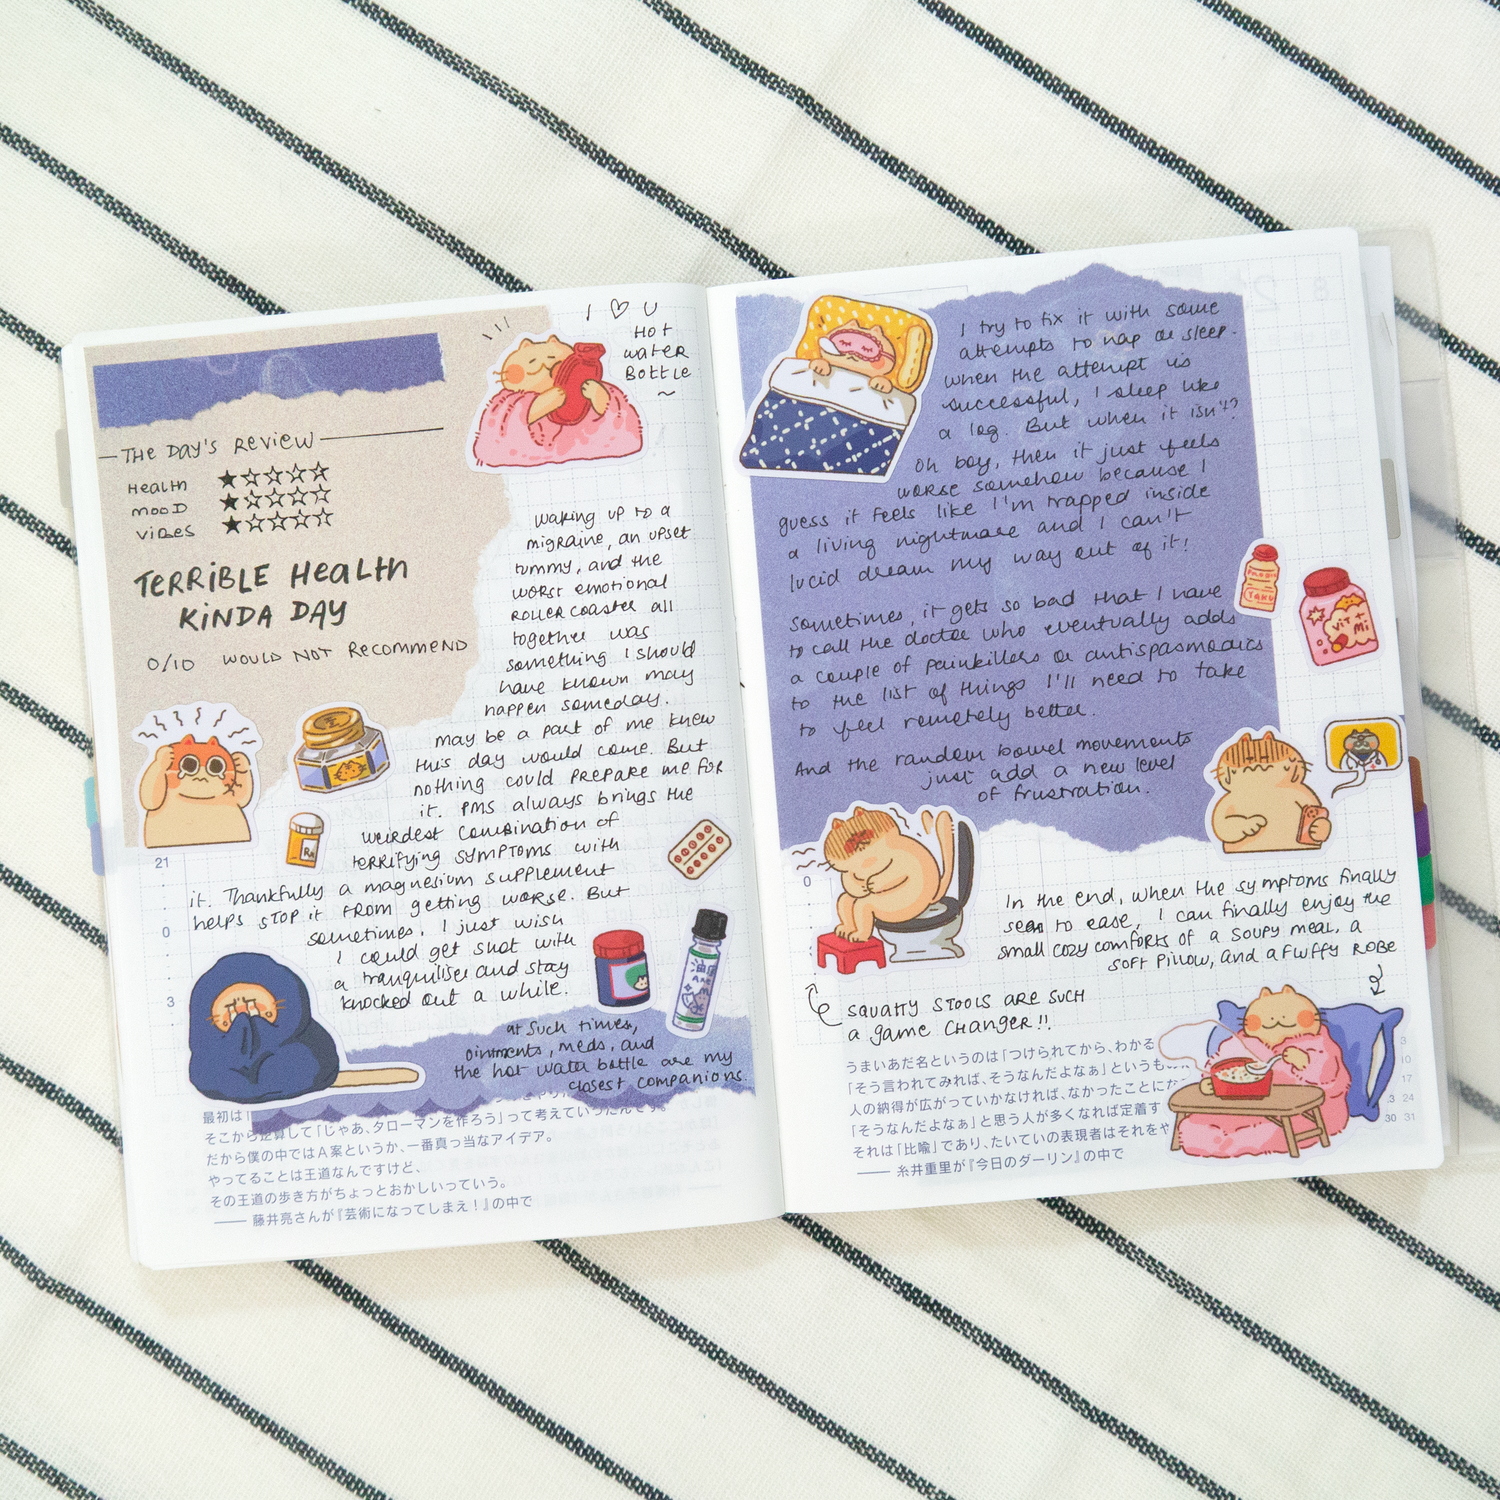 I ♡ U
HOT
WATER
BOTTLE
~
THE DAY'S REVIEW
HEALTH ★☆☆☆☆
MOOD ★☆☆☆☆
VIBES ★☆☆☆☆
TERRIBLE HEALTH
KINDA DAY
0/10 WOULD NOT RECOMMEND
waking up to a
migraine, an upset
tummy, and the
worst emotional
roller coaster all
together was
something I should
have known may
happen someday.
may be a part of me knew
this day would come. But
nothing could prepare me for
it. PMS always brings the
weirdest combination of
terrifying symptoms with
it. Thankfully a magnesium supplement
helps stop it from getting worse. But
sometimes, I just wish
I could get shot with
a tranquiliser and stay
knocked out a while.
at such times,
ointments, meds, and
the hot water bottle are my
closest companions.
21
0
3
Rx
最初は「
そこから逆算して「じゃあ、タローマンを作ろう」って考えていったんです。
だから僕の中ではA案というか、一番真っ当なアイデア。
やってることは王道なんですけど、
その王道の歩き方がちょっとおかしいっていう。
―― 藤井亮さんが『芸術になってしまえ!』の中で
I try to fix it with some
attempts to nap or sleep.
when the attempt is
successful, I sleep like
a log. But when it isn't?
Oh boy, then it just feels
worse somehow because I
guess it feels like I'm trapped inside
a living nightmare and I can't
lucid dream my way out of it!
Sometimes, it gets so bad that I have
to call the doctor who eventually adds
a couple of painkillers or antispasmodics
to the list of things I'll need to take
to feel remotely better.
And the random bowel movements
just add a new level
of frustration.
VIT +
Mi
0
In the end, when the symptoms finally
seem to ease, I can finally enjoy the
small cozy comforts of a soupy meal, a
soft pillow, and a fluffy robe
SQUATTY STOOLS ARE SUCH
a game CHANGER!!
うまいあだ名というのは「つけられてから、わかる
「そう言われてみれば、そうなんだよなぁ」というも
人の納得が広がっていかなければ、なかったことにな
「そうなんだよなぁ」と思う人が多くなれば定着す
それは「比喩」であり、たいていの表現者はそれをや
―― 糸井重里が『今日のダーリン』の中で
3
10
17
24
30 31